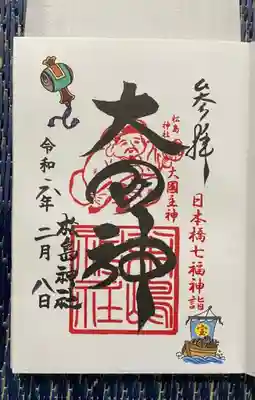 参拝
日本橋七福神詣
宝
松島
神社
大國主神
大国神
松島神社
松島神社
令和六年二月八日